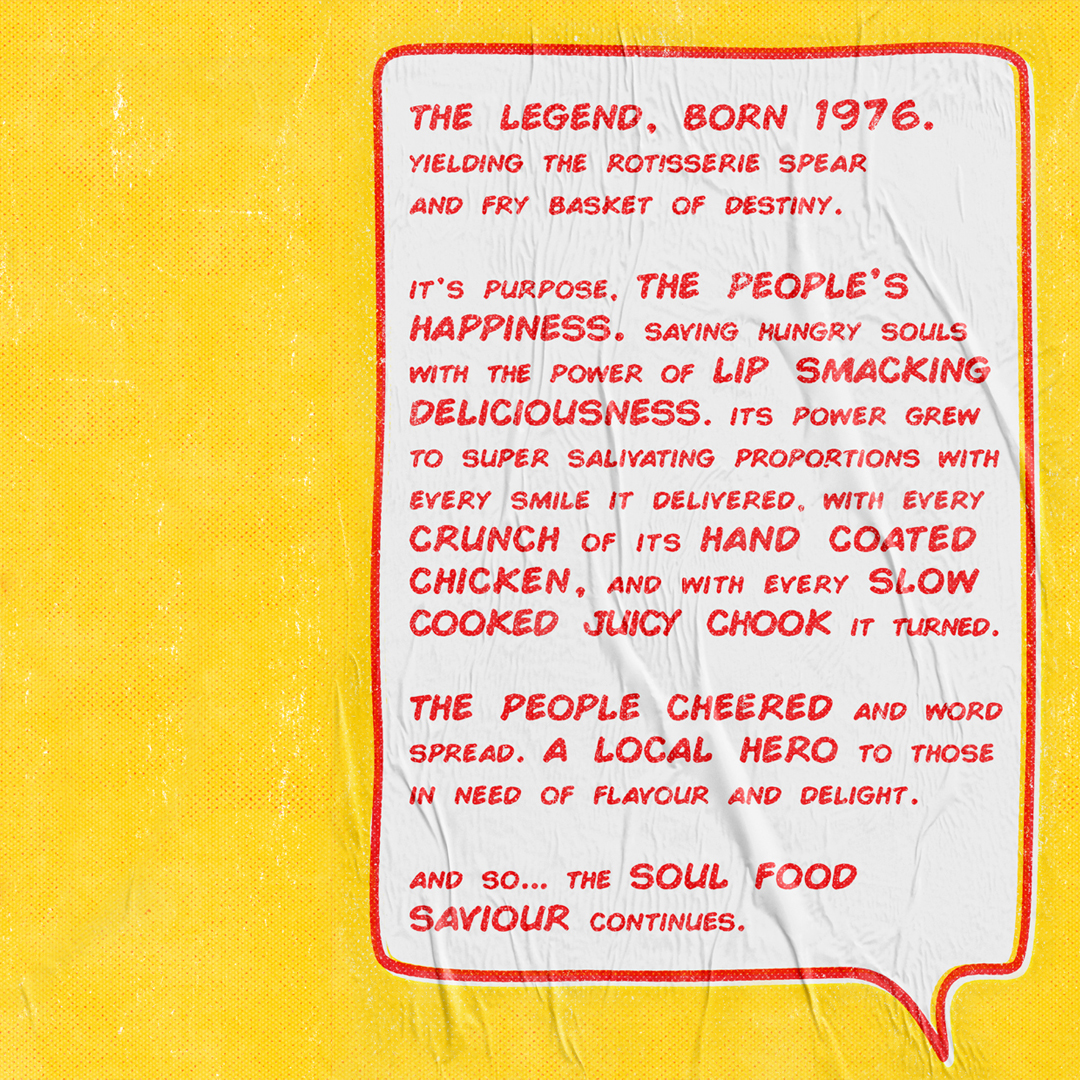 THE LEGEND, BORN 1976.
YIELDING THE ROTISSERIE SPEAR
AND FRY BASKET OF DESTINY.
IT'S PURPOSE, THE PEOPLE'S
HAPPINESS. SAVING HUNGRY SOULS
WITH THE POWER OF LIP SMACKING
DELICIOUSNESS. ITS POWER GREW
TO SUPER SALIVATING PROPORTIONS WITH
EVERY SMILE IT DELIVERED, WITH EVERY
CRUNCH OF ITS HAND COATED
CHICKEN, AND WITH EVERY SLOW
COOKED JUICY CHOOK IT TURNED.
THE PEOPLE CHEERED AND WORD
SPREAD. A LOCAL HERO TO THOSE
IN NEED OF FLAVOUR AND DELIGHT.
AND SO... THE SOUL FOOD
SAVIOUR CONTINUES.